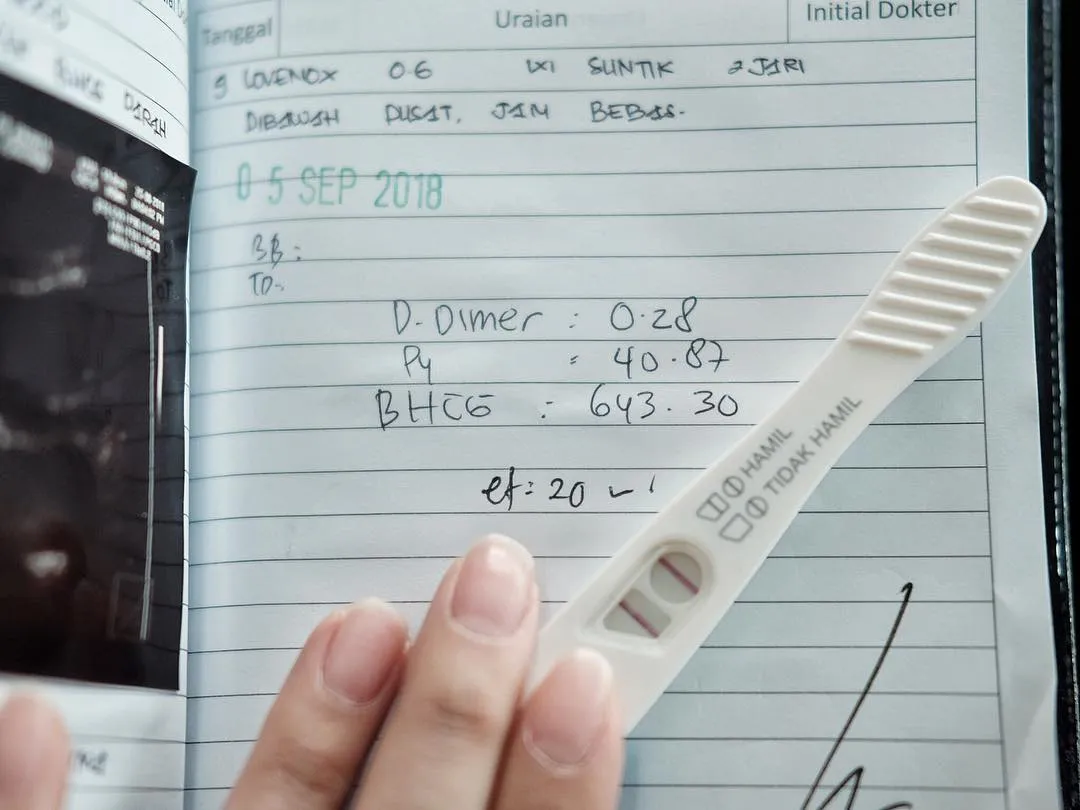 Tanggal Uraian Initial Dokter
LOVENOX 0.6 1X1 SUNTIK 2 JARI
DIBAWAH PUSAT, JAM BEBAS.
05 SEP 2018
BB :
TD :
D-Dimer : 0.28
: 40.87
BHCG : 643.30
= 20
HAMIL
TIDAK HAMIL
DARAH